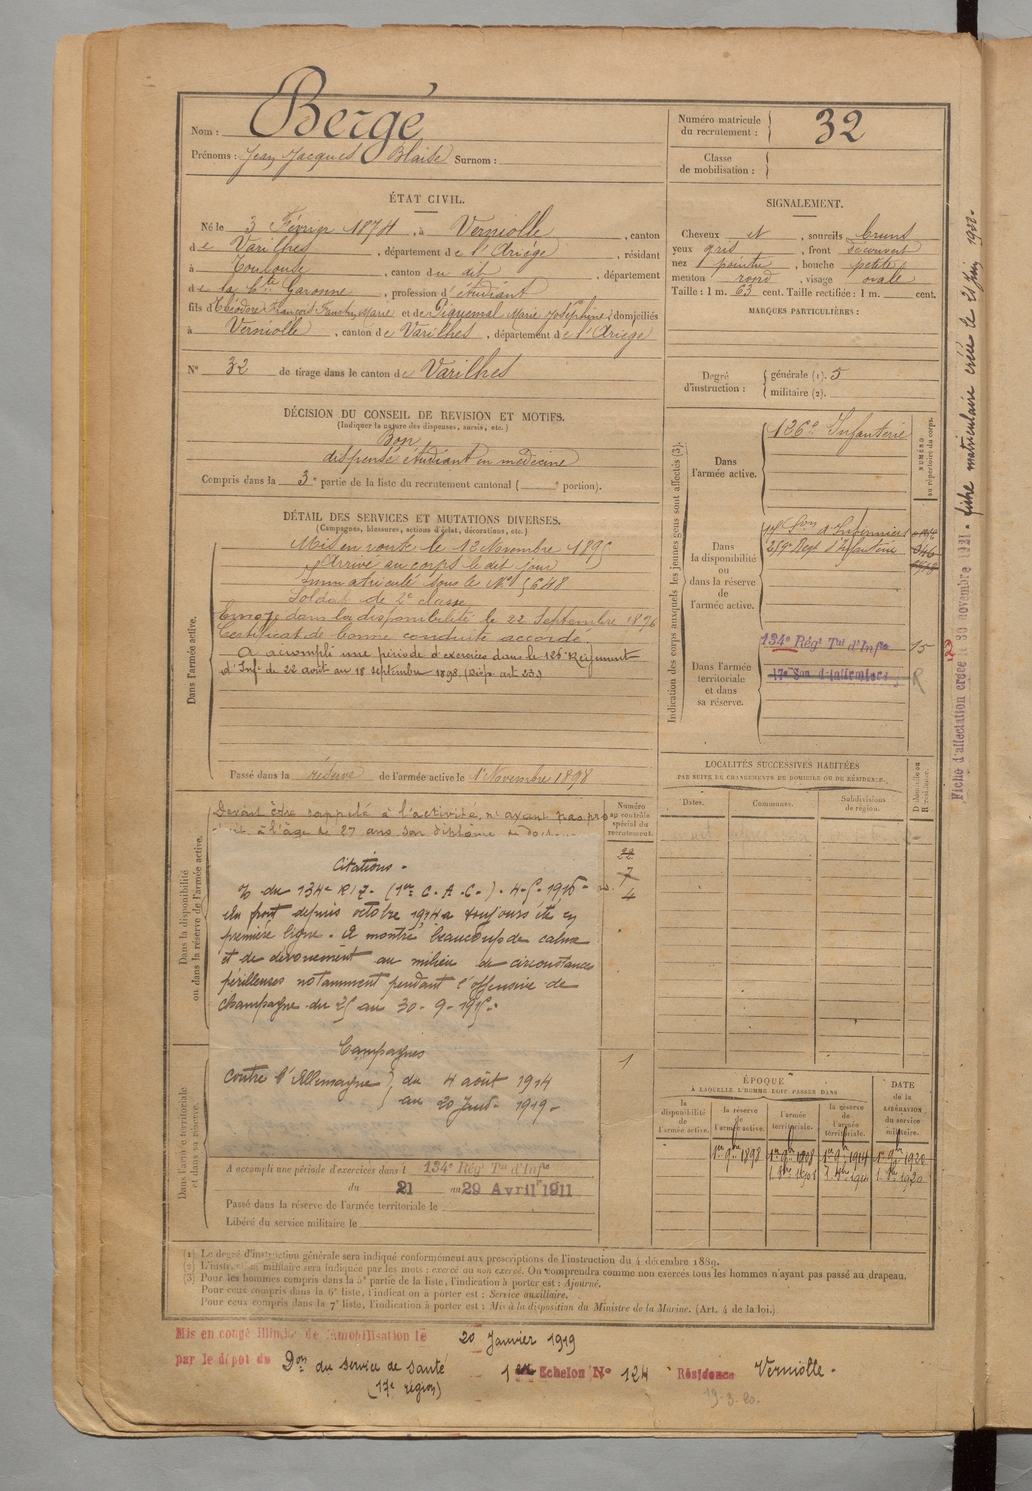 Nom : Bergé
Prénoms : Jean Jacques Blaise Surnom :
Numéro matricule du recrutement : 32
Classe de mobilisation :
ÉTAT CIVIL.
Né le 3 Février 1874, à Verniolle, canton
de Varilhes, département de l'Ariège, résidant
à Toulouse, canton du dit, département
de la Hte Garonne, profession d'étudiant
fils d'Théodore François Marie et de Piquemal Marie Joséphine, domiciliés
à Verniolle, canton de Varilhes, département de l'Ariège
N° 32 de tirage dans le canton de Varilhes
SIGNALEMENT.
Cheveux et, sourcils bruns
yeux gris, front découvert
nez pointu, bouche petite,
menton rond, visage ovale
Taille : 1 m. 63 cent. Taille rectifiée : 1 m. cent.
MARQUES PARTICULIÈRES :
Degré d'instruction : générale (1). 5
militaire (2).
DÉCISION DU CONSEIL DE REVISION ET MOTIFS.
(Indiquer la nature des dispenses, sursis, etc.)
Bon,
dispensé étudiant en médecine
Compris dans la 3e partie de la liste du recrutement cantonal ( e portion).
DÉTAIL DES SERVICES ET MUTATIONS DIVERSES.
(Campagnes, blessures, actions d'éclat, décorations, etc.)
Dans l'armée active.
Mis en route le 13 Novembre 1895
Arrivé au corps le dit jour
Immatriculé sous le N° 5648
Soldat de 2e classe
Envoyé dans la disponibilité le 22 Septembre 1896
Certificat de bonne conduite accordé
A accompli une période d'exercices dans le 126 Régiment
d'Inf. du 22 août au 18 septembre 1898 (Disp. art 23)
Passé dans la réserve de l'armée active le 1er Novembre 1898
Indication des corps auxquels les jeunes gens sont affectés (3).
NUMÉRO au répertoire du corps.
Dans l'armée active. 126e Infanterie
Dans la disponibilité ou dans la réserve de l'armée active.
17e Son d'Infirmiers
259e Regt d'Infanterie
Dans l'armée territoriale et dans sa réserve.
134e Régt Tal d'Infie 15
17e Son d'Infirmiers R
LOCALITÉS SUCCESSIVES HABITÉES
PAR SUITE DE CHANGEMENTS DE DOMICILE OU DE RÉSIDENCE.
Dates. Communes. Subdivisions de région. D domicile ou R résidence.
Dans la disponibilité ou dans la réserve de l'armée active.
Devant être rappelé à l'activité, n'ayant pas pro
à l'âge de 27 ans son diplôme de
Numéro au contrôle spécial du recrutement.
22
7
4
1
Citations -
du 134e R.I.T. (1er C.A.C.). 4-5-1916-
Au front depuis octobre 1914 a toujours été en
première ligne. A montré beaucoup de calme
et de dévouement au milieu de circonstances
périlleuses notamment pendant l'offensive de
Champagne du 25 au 30-9-1915.
Campagnes
Contre l'Allemagne } du 4 août 1914
au 20 Janv. 1919 -
Dans l'armée territoriale et dans sa réserve.
A accompli une période d'exercices dans l 134e Régt Tal d'Infie
du 21 au 29 Avril 1911
Passé dans la réserve de l'armée territoriale le
Libéré du service militaire le
ÉPOQUE
À LAQUELLE L'HOMME DOIT PASSER DANS
la disponibilité de l'armée active. la réserve de l'armée active. l'armée territoriale. la réserve de l'armée territoriale.
DATE de la LIBÉRATION du service militaire.
1er 9bre 1898 1er 9bre 1908 1er 9bre 1914 1er 9bre 1920
(1) Le degré d'instruction générale sera indiqué conformément aux prescriptions de l'instruction du 4 décembre 1889.
(2) L'instruction militaire sera indiquée par les mots : exercé ou non exercé. On comprendra comme non exercés tous les hommes n'ayant pas passé au drapeau.
(3) Pour les hommes compris dans la 5e partie de la liste, l'indication à porter est : Ajourné.
Pour ceux compris dans la 6e liste, l'indication à porter est : Service auxiliaire.
Pour ceux compris dans la 7e liste, l'indication à porter est : Mis à la disposition du Ministre de la Marine. (Art. 4 de la loi.)
Mis en congé illimité de démobilisation le 20 Janvier 1919
par le dépôt du Don du service de santé 1er Echelon N° 124 Résidence Verniolle -
(17e région)
19-3-20.
Fiche d'affectation créée le 30 novembre 1921. fiche matriculaire créée le 21 juin 1932.